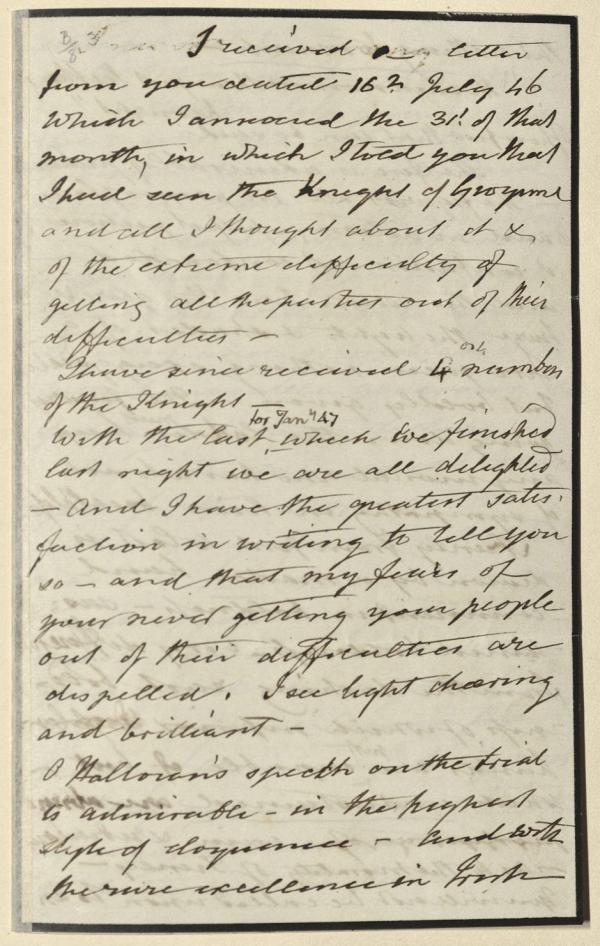 I received a letter
from you dated 16th July 46
which I answered the 31st of that
month, in which I told you that
I had seen the Knight of Gwynne
and all I thought about it &
of the extreme difficulty of
getting all the parties out of their
difficulties –
I have since received 4 numbers
of the Knight –
for Jany 47
With the last, which we finished
last night we are all delighted
– And I have the greatest satis-
faction in writing to tell you
so – and that my fears of
your never getting your people
out of their difficulties are
dispelled. I see light cheering
and brilliant –
O'Halloran's speech on the trial
is admirable – in the highest
style of eloquence – and with
the rare excellence in Irish